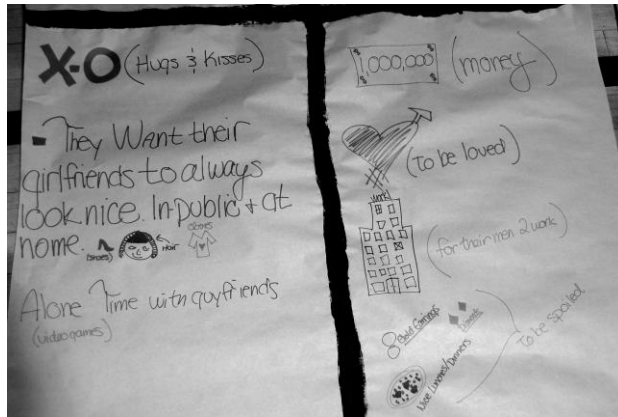 X-O (Hugs & Kisses)
- They Want their
girlfriends to always
look nice. In public + at
home.
(SHOES)
HAIR
Alone Time with guyfriends
(video games)
1,000,000 (money)
(To be loved)
WORK
(for their men 2 work)
Gold Earrings
Nice Lunches/Dinners
To be spoiled